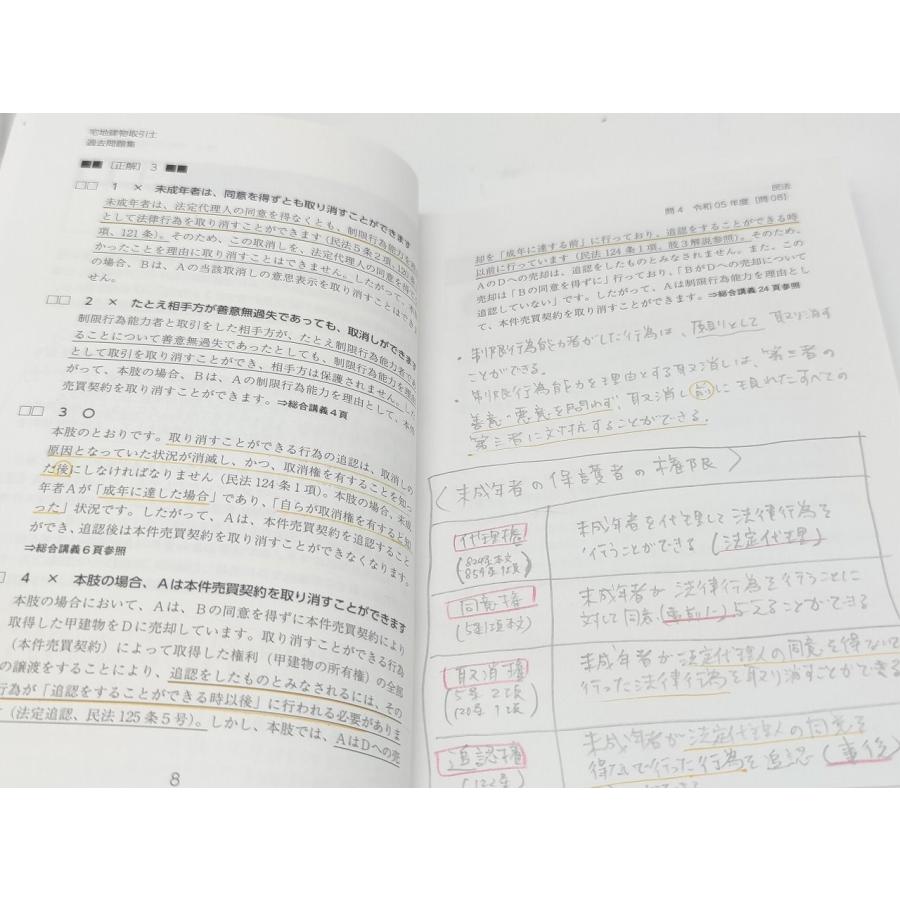 宅地建物取引士
過去問題集
[正解] 3
1 × 未成年者は、同意を得ずとも取り消すことができます
未成年者は、法定代理人の同意を得なくとも、制限行為能力を
として法律行為を取り消すことができます(民法5条2項、120条
項、121条)。そのため、この取消しを、法定代理人の同意を得て
かったことを理由に取り消すことはできません。したがって、本
の場合、Bは、Aの当該取消しの意思表示を取り消すことはでき
せん。
2 × たとえ相手方が善意無過失であっても、取消しができます
制限行為能力者と取引をした相手方が、たとえ制限行為能力者であ
ることについて善意無過失であったとしても、制限行為能力を理由
として取引を取り消すことができ、相手方は保護されません。した
がって、本肢の場合、Bは、Aの制限行為能力を理由として、本件
売買契約を取り消すことができます。⇒総合講義4頁
3 ○
本肢のとおりです。取り消すことができる行為の追認は、取消しの
原因となっていた状況が消滅し、かつ、取消権を有することを知っ
た後にしなければなりません(民法124条1項)。本肢の場合、未成
年者Aが「成年に達した場合」であり、「自らが取消権を有すると知
った」状況です。したがって、Aは、本件売買契約を追認すること
ができ、追認後は本件売買契約を取り消すことができなくなります。
⇒総合講義6頁参照
4 × 本肢の場合、Aは本件売買契約を取り消すことができます
本肢の場合において、Aは、Bの同意を得ずに本件売買契約により
取得した甲建物をDに売却しています。取り消すことができる行為
(本件売買契約)によって取得した権利(甲建物の所有権)の全部
の譲渡をすることにより、追認をしたものとみなされるには、その
行為が「追認をすることができる時以後」に行われる必要がありま
す(法定追認、民法125条5号)。しかし、本肢では、AはDへの売
8
民法
問4 令和05年度 [問08]
却を「成年に達する前」に行っており、追認をすることができる時
以前に行っています(民法124条1項。肢3解説参照)。そのため、
AのDへの売却は、追認をしたものとみなされません。また、この
売却は「Bの同意を得ずに」行っており、「BがDへの売却について
追認していない」です。したがって、Aは制限行為能力を理由とし
て、本件売買契約を取り消すことができます。⇒総合講義24頁参照
・制限行為能力者がした行為は、原則として 取り消す
ことができる。
・制限行為能力を理由とする取消しは、第三者の
善意・悪意を問わず、取消し前に現れたすべての
第三者に対抗することができる。
〈未成年者の保護者の権限〉
代理権
(824条本文
859条1項)
未成年者を代理して法律行為を
行うことができる (法定代理)
同意権
(5条1項本文)
未成年者が法律行為を行うことに
対して同意(事前に)与えることができる
取消権
(5条2項
120条1項)
未成年者が法定代理人の同意を得ないで
行った法律行為を取り消すことができる
追認権
(122条)
未成年者が法定代理人の同意を
得ないで行った行為を追認 (事後)